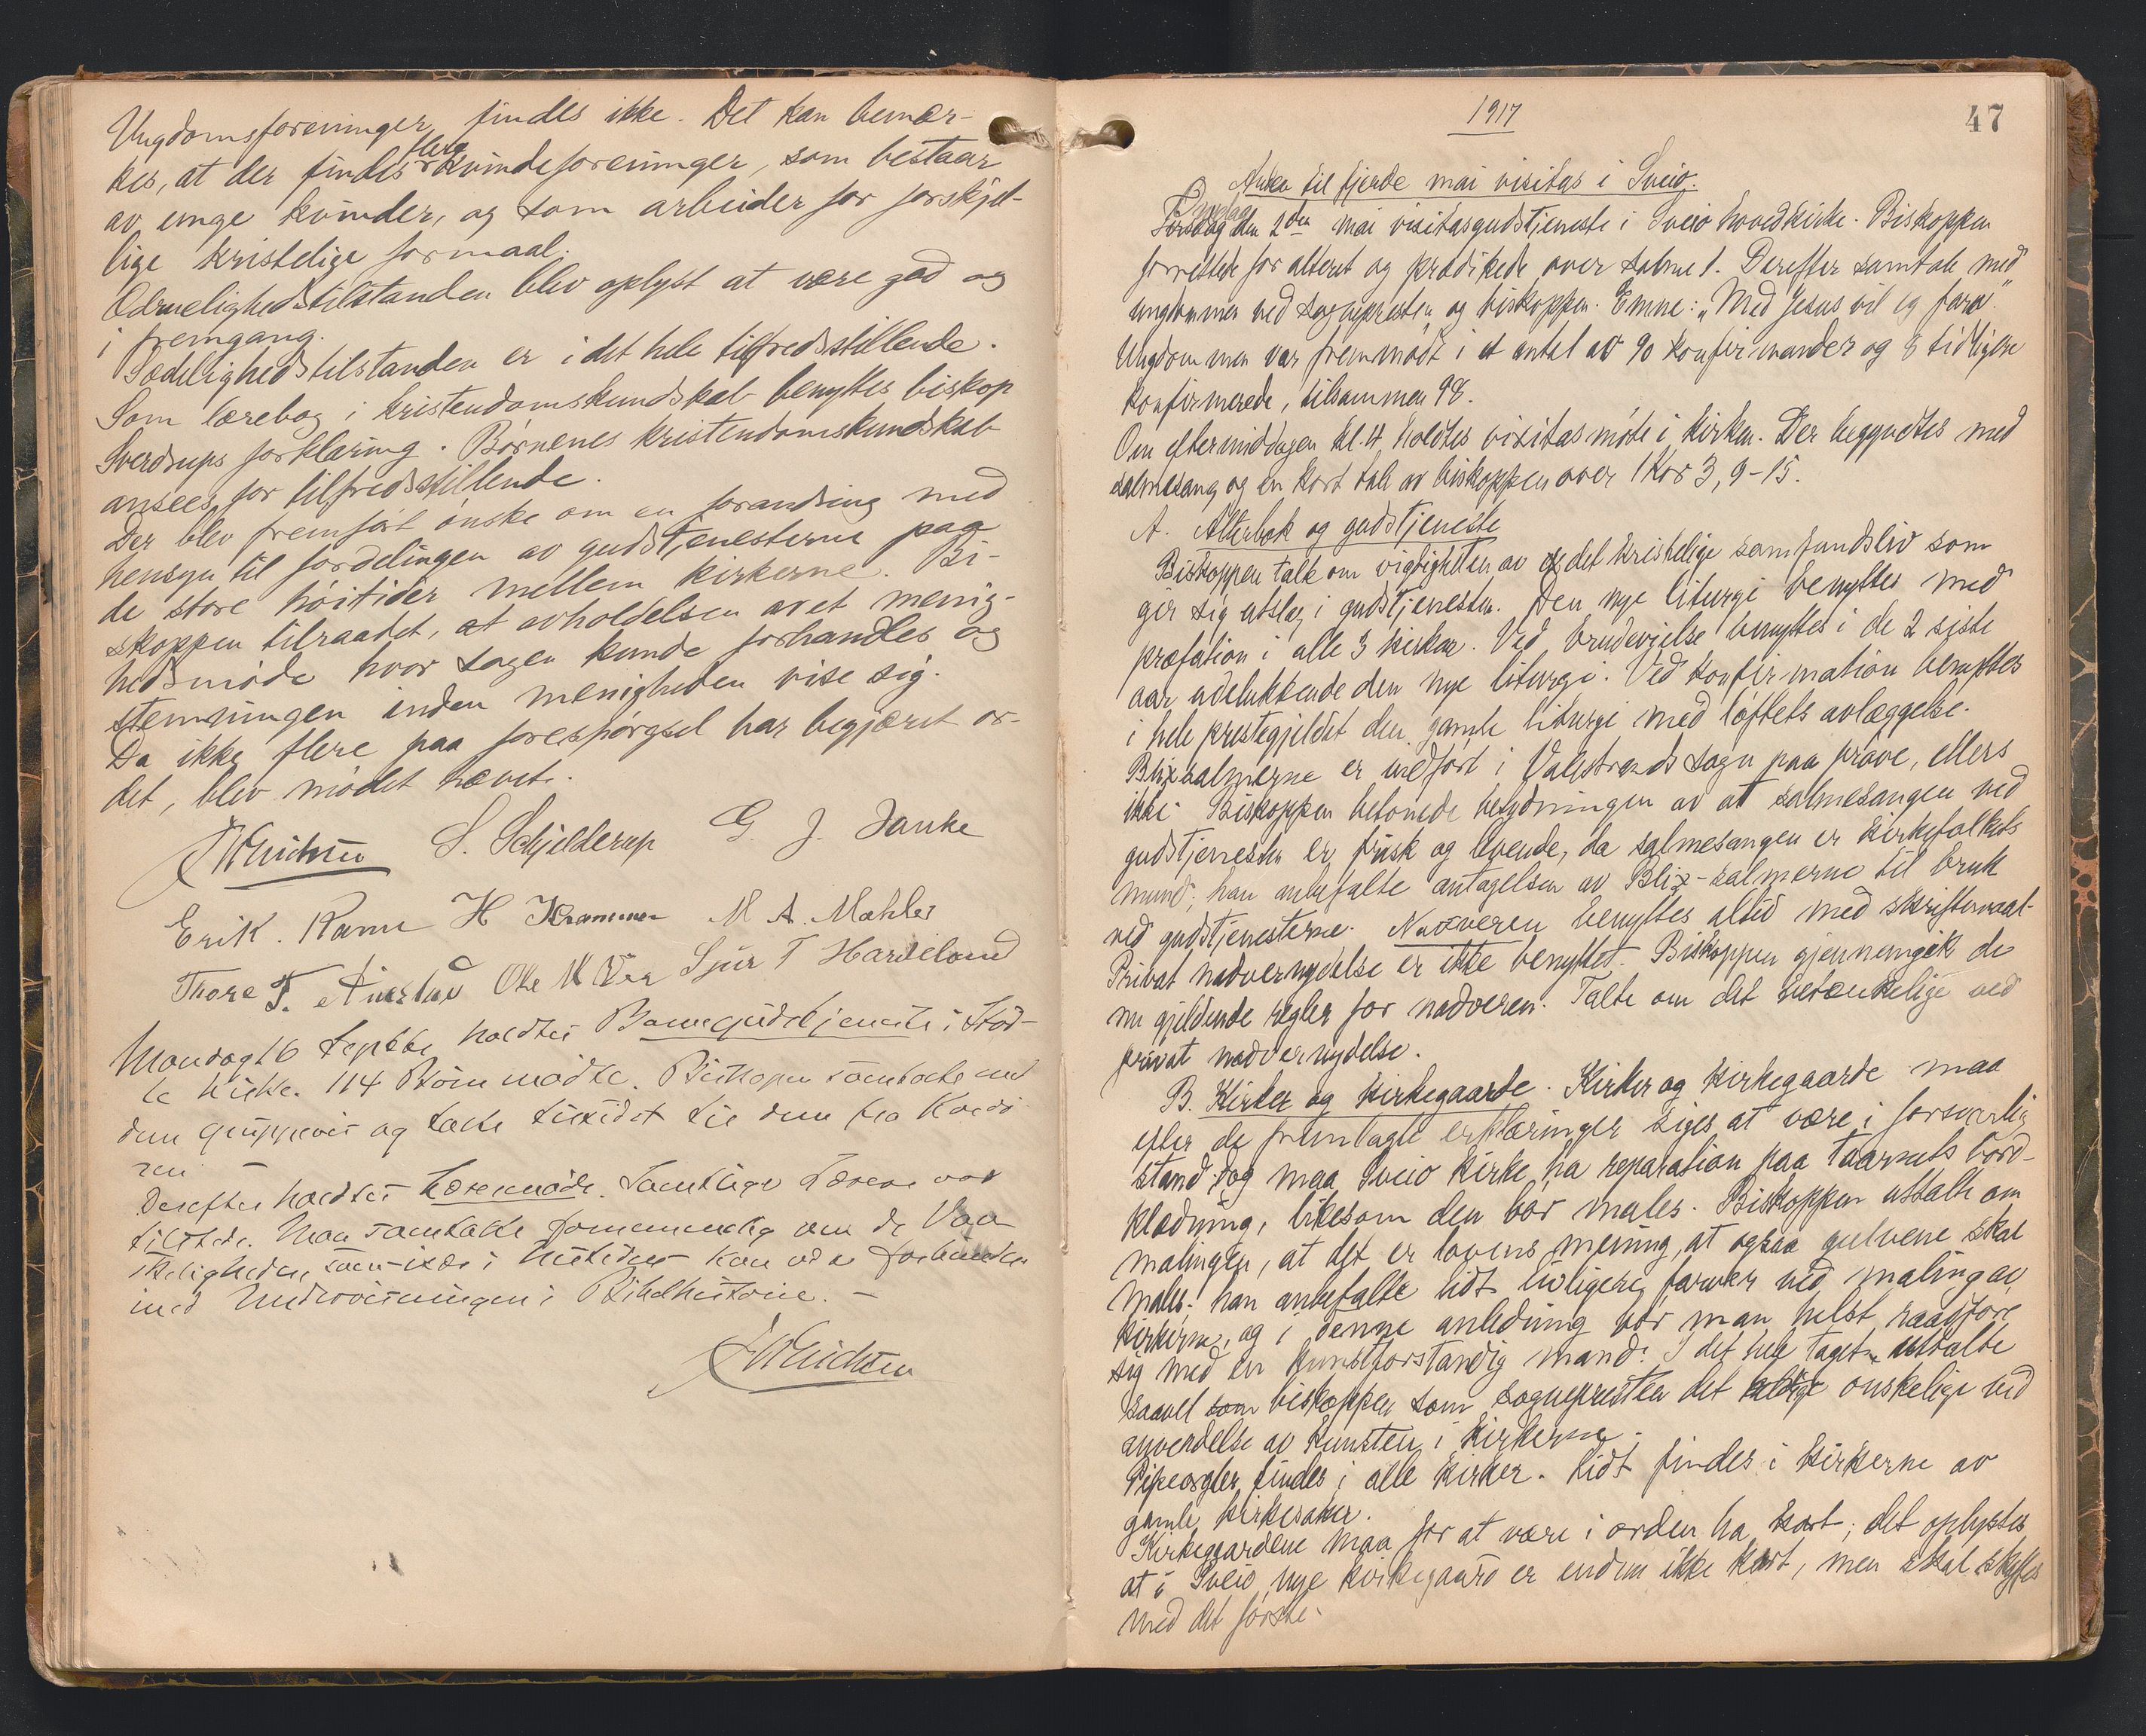 Ungdomsforeninger findes ikke. Det kan bemær-
kes, at der findes flere kvindeforeninger, som bestaar
av unge kvinder, og som arbeider for forskjel-
lige kristelige formaal.
Ædruelighedstilstanden blev oplyst at være god og
i fremgang.
Sædelighedstilstanden er i det hele tilfredsstillende.
Som lærebog i kristendomskundskab benyttes biskop
Sverdrups forklaring. Børnenes kristendomskundskab
ansees for tilfredsstillende.
Der blev fremført ønske om en forandring med
hensyn til fordelingen av gudstjenesterne paa
de store høitider mellem kirkerne. Bi-
skoppen tilraadet, at avholdelsen av et menig-
hedsmøde hvor sagen kunde forhandles og
stemningen inden menigheden vise sig.
Da ikke flere paa forespørgsel har begjæret or-
det, blev mødet hævet.
S. Schjelderup G. J. Janke
Erik. Ramn H Krammer M. A. Mahler
Thore T. Ole M Sjur T Hardeland
Mandag 16 Septbr holdtes Barnegudstjeneste i Stød-
le Kirke. 114 Børn mødte. Biskopen samtalte med
dem gruppevis og talte tilsidst til dem fra Kordø
ren
Derefter holdtes Læremøde. Samtlige Lærere var
tilstede. Man samtalte fornemmelig om de Van
skeligheder, som især i nutiden kan være forbunden
med Undervisningen i Bibelhistorie. –
1917
47
Anden til fjerde mai visitas i Sveio.
Onsdag den 2den mai visitasgudstjeneste i Sveio hovedkirke. Biskoppen
forrettede for alteret og prædikede over salme 1. Derefter samtale med
ungdommen ved sognepresten og biskoppen. Emne: "Med Jesus vil eg fara."
Ungdommen var fremmødt i et antal av 90 konfirmander og 8 tidligere
konfirmerede, tilsammen 98.
Om eftermiddagen kl. 4 holdtes visitasmøte i kirken. Der begyndtes med
salmesang og en kort tale av biskoppen over 1 Kor 3, 9-15.
A. Alterbok og gudstjeneste
Biskoppen talte om vigtigheten av det kristelige samfundsliv som
gir sig utslag i gudstjenesten. Den nye liturgi benyttes med
præfation i alle 3 kirker. Ved brudevielse benyttes i de 2 siste
aar udelukkende den nye liturgi. Ved konfirmation benyttes
i hele prestegjeldet den gamle liturgi med løftets avlæggelse.
Blixsalmerne er indført i Valestrands sogn paa prøve, ellers
ikke. Biskoppen betonede betydningen av at salmesangen ved
gudstjenesten er frisk og levende, da salmesangen er kirkefolkets
mund; han anbefalte antagelsen av Blix-salmerne til bruk
ved gudstjenesterne. Nadveren benyttes altid med skriftemaal.
Privat nadvernydelse er ikke benyttet. Biskoppen gjennemgik de
nu gjeldende regler for nadveren. Talte om det betænkelige ved
privat nadvernydelse.
B. Kirker og kirkegaarde. Kirker og kirkegaarde maa
efter de fremlagte erklæringer siges at være i forsvarlig
stand; dog maa Sveio kirke ha reparation paa taarnets bord-
klædning, likesom den bør males. Biskoppen uttalte om
malingen, at det er lovens mening, at ogsaa gulvene skal
males. han anbefalte lidt livligere farver ved maling av
kirkerne, og i denne anledning bør man helst raadføre
sig med en kunstforstandig mand. I det hele taget uttalte
saavel som biskoppen som sognepresten det ønskelige ved
anvendelse av kunsten i kirkerne.
Pipeorgler findes i alle kirker. Lidt findes i kirkerne av
gamle kirkesaker.
Kirkegaardene maa for at være i orden ha kart; det oplystes
at i Sveio nye kirkegaard er endnu ikke kart, men skal skaffes
med det første.